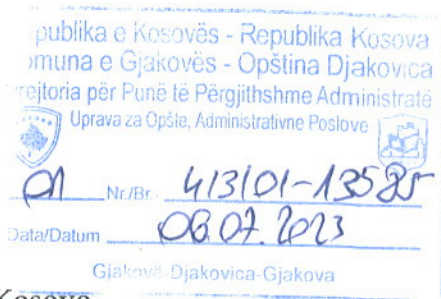 publika e Kosovës - Republika Kosova
muna e Gjakovës - Opština Djakovica
rejtoria për Punë të Përgjithshme Administratë
Uprava za Opšte, Administrativne Poslove
01 Nr./Br. 413/01-13585
Data/Datum 06.07.2023
Gjakovë-Djakovica-Gjakova
Kosovo